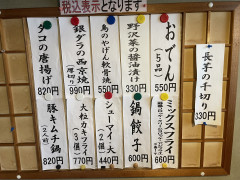 税込表示となります。
おでん
(5品)
550円
野沢菜の醤油漬け
330円
鳥のやげん軟骨焼
550円
銀ダラの西京焼
990円
タコの唐揚げ
820円
長芋の千切り
330円
ミックスフライ
660円
鍋餃子
600円
シューマイ
(2個)
440円
大粒カキフライ
(3個)
770円
豚キムチ鍋
(2人前)
820円